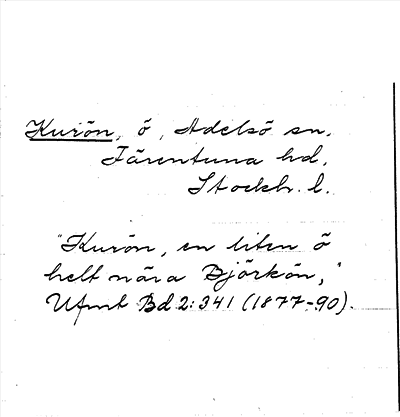 Kurön, ö, Adelsö sn.
Färentuna hd.
Stockh. l.
"Kurön, en liten ö
helt nära Björkön,"
Ufmt Bd 2:341 (1877-90).